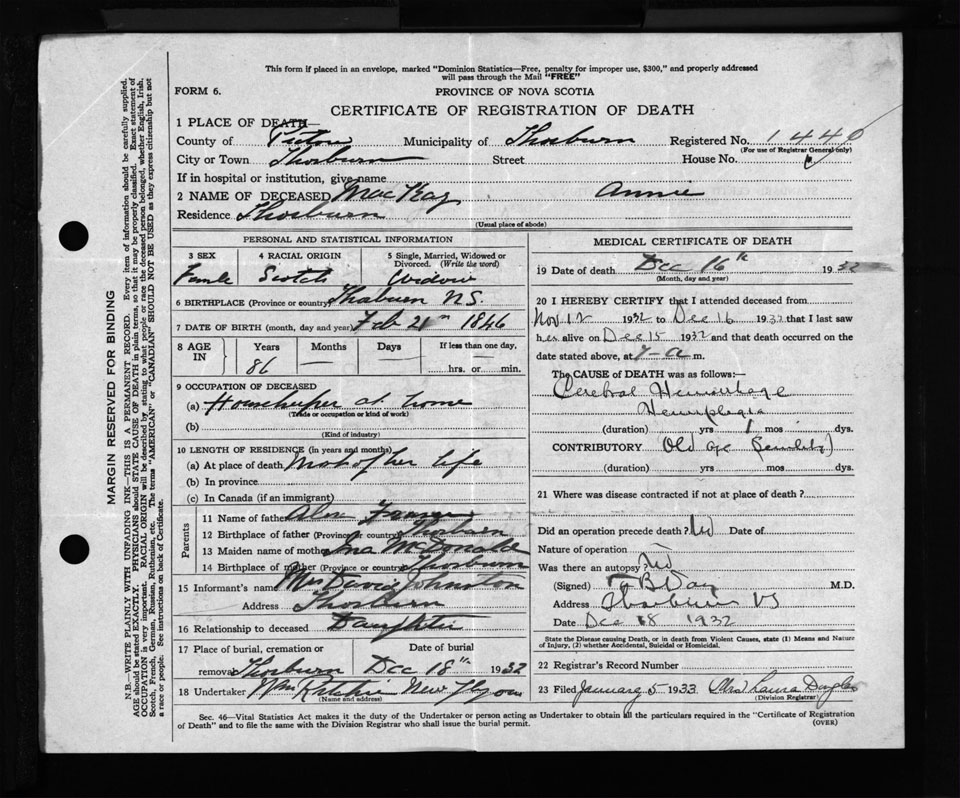 This form if placed in an envelope, marked "Dominion Statistics—Free, penalty for improper use, $300," and properly addressed
will pass through the Mail "FREE"
FORM 6.
PROVINCE OF NOVA SCOTIA
CERTIFICATE OF REGISTRATION OF DEATH
1 PLACE OF DEATH—
County of Pictou Municipality of Thorburn Registered No. 1440
(For use of Registrar General only)
City or Town Thorburn Street House No.
If in hospital or institution, give name
2 NAME OF DECEASED MacKay Annie
Residence Thorburn
(Usual place of abode)
PERSONAL AND STATISTICAL INFORMATION
3 SEX 4 RACIAL ORIGIN 5 Single, Married, Widowed or
Divorced. (Write the word)
Female Scotch Widow
6 BIRTHPLACE (Province or country) Thorburn N.S.
7 DATE OF BIRTH (month, day and year) Feb 21st 1846
8 AGE IN Years Months Days If less than one day,
86 — — hrs. or min.
9 OCCUPATION OF DECEASED
(a) Housekeeper at home
(Trade or occupation or kind of work)
(b)
(Kind of industry)
10 LENGTH OF RESIDENCE (in years and months)
(a) At place of death Most of her life
(b) In province
(c) In Canada (if an immigrant)
Parents
11 Name of father Alex Fraser
12 Birthplace of father (Province or country) Thorburn
13 Maiden name of mother Ina McDonald
14 Birthplace of mother (Province or country) Thorburn
15 Informant's name Mrs David Johnston
Address Thorburn
16 Relationship to deceased Daughter
17 Place of burial, cremation or Date of burial
removal Thorburn Dec 18th 1932
18 Undertaker Wm Ritchie New Glasgow
(Name and address)
MEDICAL CERTIFICATE OF DEATH
19 Date of death Dec 16th 1932
(Month, day and year)
20 I HEREBY CERTIFY that I attended deceased from
Nov 12 1932 to Dec 16 1932 that I last saw
her alive on Dec 15 1932 and that death occurred on the
date stated above, at 7 a m.
The CAUSE of DEATH was as follows:
Cerebral Hemorrhage
Hemiplegia
(duration) yrs 1 mos dys.
CONTRIBUTORY Old age (Senility)
(duration) yrs. mos dys.
21 Where was disease contracted if not at place of death?
Did an operation precede death? No Date of
Nature of operation
Was there an autopsy? No
(Signed) B Day M.D.
Address Thorburn NS
Date Dec 18 1932
State the Disease causing Death, or in death from Violent Causes, state (1) Means and Nature
of Injury, (2) whether Accidental, Suicidal or Homicidal.
22 Registrar's Record Number
23 Filed January 5 1933 Mrs Laura Douglas
(Division Registrar)
Sec. 46—Vital Statistics Act makes it the duty of the Undertaker or person acting as Undertaker to obtain all the particulars required in the "Certificate of Registration
of Death" and to file the same with the Division Registrar who shall issue the burial permit.
(OVER)
MARGIN RESERVED FOR BINDING
N.B.—WRITE PLAINLY WITH UNFADING INK—THIS IS A PERMANENT RECORD. Every item of information should be carefully supplied.
AGE should be stated EXACTLY. PHYSICIANS should STATE CAUSE OF DEATH in plain terms, so that it may be properly classified. Exact statement of
OCCUPATION is very important. RACIAL ORIGIN will be described by stating to what people or race the deceased person belonged, whether English, Irish,
Scotch, French, German, Russian, Ruthenian, etc. The terms "AMERICAN" or "CANADIAN" SHOULD NOT BE USED as they express citizenship but not
a race or people. See instructions on back of Certificate.